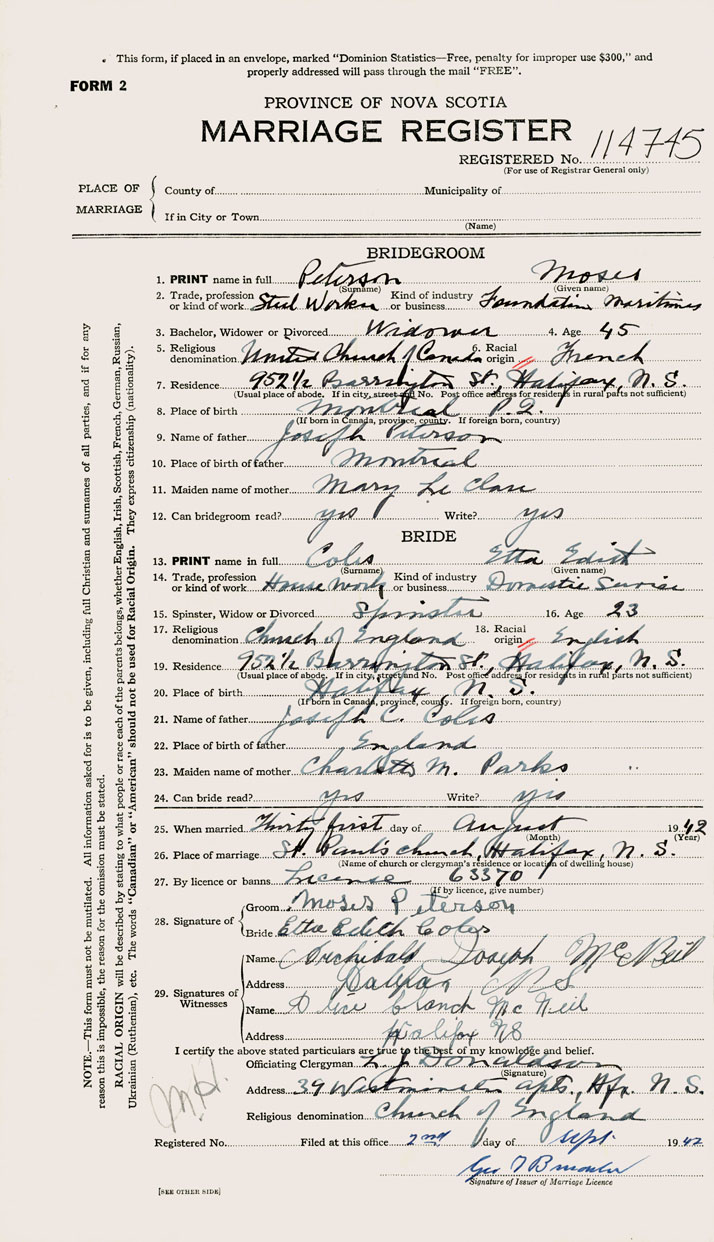 This form, if placed in an envelope, marked "Dominion Statistics—Free, penalty for improper use $300," and
properly addressed will pass through the mail "FREE".
FORM 2
PROVINCE OF NOVA SCOTIA
MARRIAGE REGISTER
REGISTERED No. 114745
(For use of Registrar General only)
PLACE OF MARRIAGE
County of Municipality of
If in City or Town
(Name)
BRIDEGROOM
1. PRINT name in full Peterson Moses
(Surname) (Given name)
2. Trade, profession or kind of work Steel Worker Kind of industry or business Foundation Maritimes
3. Bachelor, Widower or Divorced Widower 4. Age 45
5. Religious denomination United Church of Canada 6. Racial origin French
7. Residence 952½ Barrington St., Halifax, N. S.
(Usual place of abode. If in city, street and No. Post office address for residents in rural parts not sufficient)
8. Place of birth Montreal P.Q.
(If born in Canada, province, county. If foreign born, country)
9. Name of father Joseph Peterson
10. Place of birth of father Montreal
11. Maiden name of mother Mary Le Clare
12. Can bridegroom read? yes Write? yes
BRIDE
13. PRINT name in full Coles Etta Edith
(Surname) (Given name)
14. Trade, profession or kind of work House work Kind of industry or business Domestic Service
15. Spinster, Widow or Divorced Spinster 16. Age 23
17. Religious denomination Church of England 18. Racial origin English
19. Residence 952½ Barrington St., Halifax, N. S.
(Usual place of abode. If in city, street and No. Post office address for residents in rural parts not sufficient)
20. Place of birth Halifax, N. S.
(If born in Canada, province, county. If foreign born, country)
21. Name of father Joseph C. Coles
22. Place of birth of father England
23. Maiden name of mother Charlotte M. Parks
24. Can bride read? yes Write? yes
25. When married Thirty first day of August 1942
(Month) (Year)
26. Place of marriage St. Paul's church, Halifax, N. S.
(Name of church or clergyman's residence or location of dwelling house)
27. By licence or banns License 63370
(If by licence, give number)
28. Signature of
Groom Moses Peterson
Bride Etta Edith Coles
29. Signatures of Witnesses
Name Archibald Joseph McNeil
Address Halifax N S
Name Blanch McNeil
Address Halifax NS
I certify the above stated particulars are true to the best of my knowledge and belief.
Officiating Clergyman L. J. Donaldson
(Signature)
Address 39 Westminster Apts., Hfx. N. S.
Religious denomination Church of England
Registered No. Filed at this office 2nd day of Sept. 1942
Geo
Signature of Issuer of Marriage Licence
[SEE OTHER SIDE]
NOTE.—This form must not be mutilated. All information asked for is to be given, including full Christian and surnames of all parties, and if for any
reason this is impossible, the reason for the omission must be stated.
RACIAL ORIGIN will be described by stating to what people or race each of the parents belongs, whether English, Irish, Scottish, French, German, Russian,
Ukrainian (Ruthenian), etc. The words "Canadian" or "American" should not be used for Racial Origin. They express citizenship (nationality).